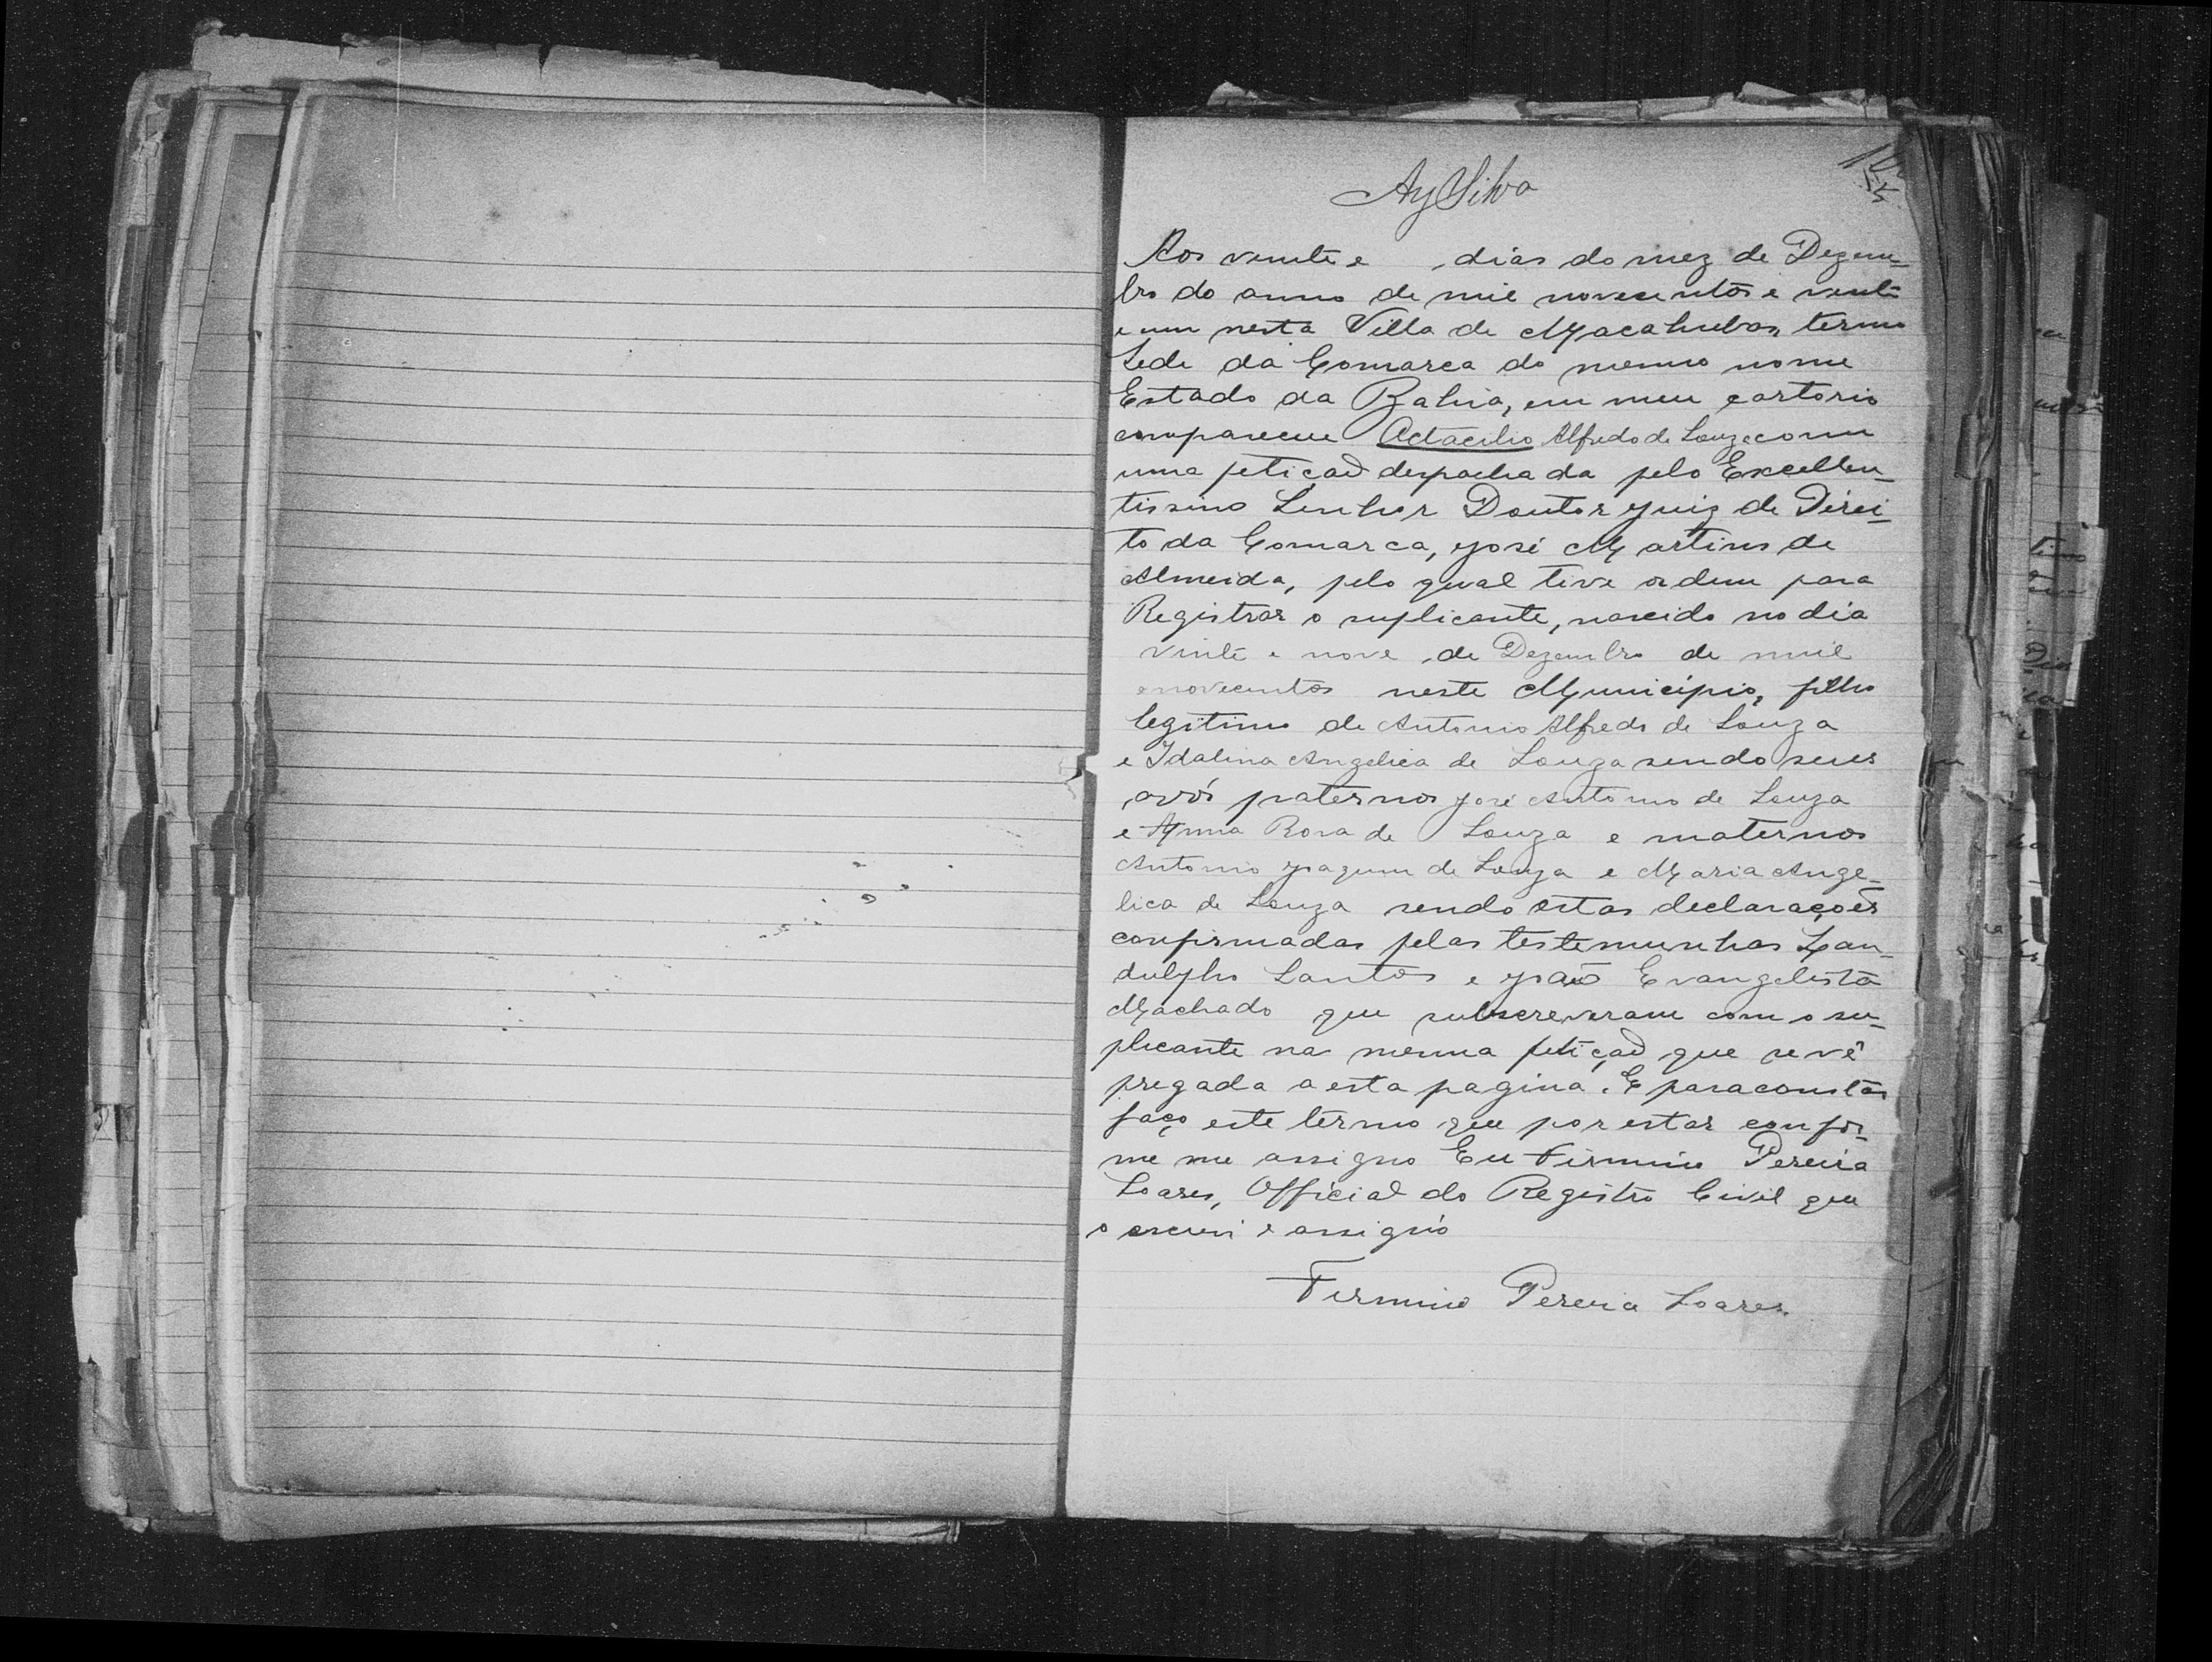 AySilva
Aos vinte e dias do mez de Dezem-
bro do anno de mil novecentos e vinte
e um nesta Villa de Macahubas, termo
Sede da Comarca do mesmo nome
Estado da Bahia, em meu cartorio
compareceu Actacilio Alfredo de Souza com
uma petição despachada pelo Excellen-
tissimo Senhor Doutor Juiz de Direi-
to da Comarca, José Martins de
Almeida, pelo qual tive ordem para
Registrar o suplicante, nascido no dia
vinte e nove de Dezembro de mil
e novecentos neste Municipio, filho
legitimo de Antonio Alfredo de Souza
e Idalina Angelica de Souza sendo seus
avós paternos José Antonio de Souza
e Anna Rosa de Souza e maternos
Antonio Joaquim de Souza e Maria Ange-
lica de Souza sendo estas declarações
confirmadas pelas testemunhas Lan-
dulpho Santos e João Evangelista
Machado que subscreveram com o su-
plicante na mesma petição que se vê
pregada a esta pagina. E para constar
faço este termo que por estar confor-
me me assigno Eu Firmino Pereira
Soares, Official do Registro Civil que
o escrevi e assigno
Firmino Pereira Soares.